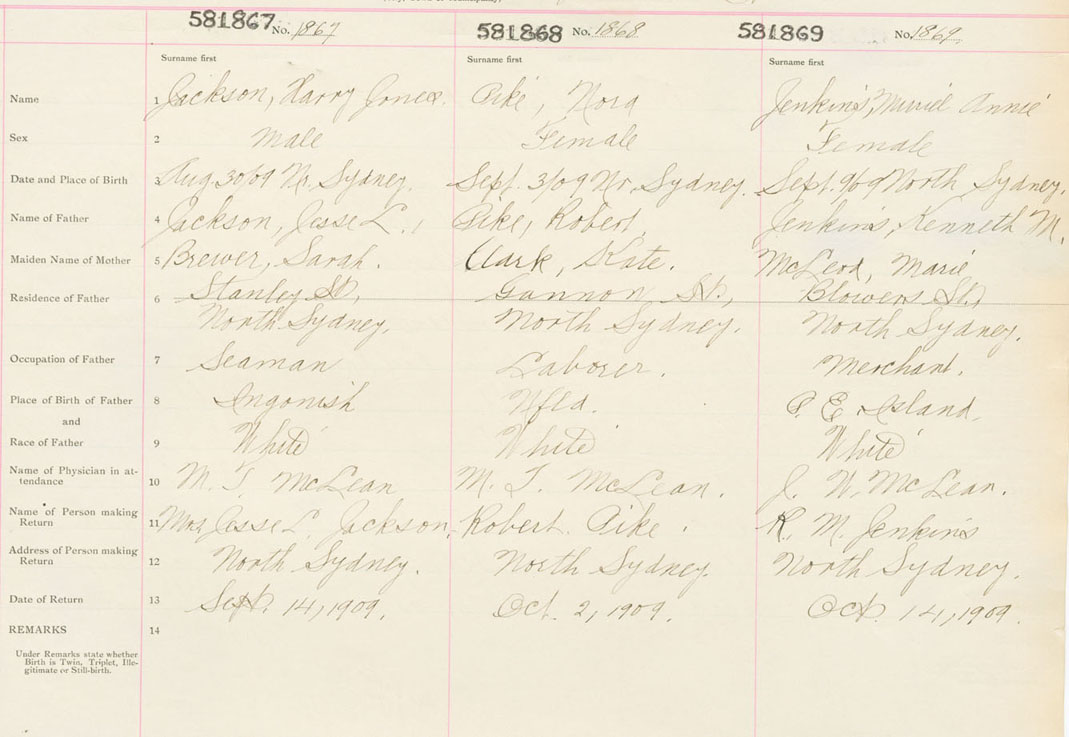 581867 No. 1867 581868 No. 1868 581869 No. 1869
Surname first Surname first Surname first
Name 1 Jackson, Harry Jones. Pike, Nora Jenkins, Muriel Annie
Sex 2 Male Female Female
Date and Place of Birth 3 Aug. 30/09 Nr. Sydney. Sept. 3/09 Nr. Sydney. Sept. 9/09 North Sydney.
Name of Father 4 Jackson, Jesse L. Pike, Robert. Jenkins, Kenneth M.
Maiden Name of Mother 5 Brewer, Sarah. Clark, Kate. McLeod, Marie
Residence of Father 6 Stanley St., Gannon St., Blowers St.,
North Sydney. North Sydney. North Sydney.
Occupation of Father 7 Seaman Laborer. Merchant.
Place of Birth of Father 8 Ingonish Nfld. P. E. Island.
and
Race of Father 9 White White White
Name of Physician in at-
tendance 10 M. T. McLean M. T. McLean. J. W. McLean.
Name of Person making
Return 11 Mrs Jesse L. Jackson. Robert Pike. K. M. Jenkins
Address of Person making
Return 12 North Sydney. North Sydney. North Sydney.
Date of Return 13 Sept. 14, 1909. Oct. 2, 1909. Oct. 14, 1909.
REMARKS 14
Under Remarks state whether
Birth is Twin, Triplet, Ille-
gitimate or Still-birth.